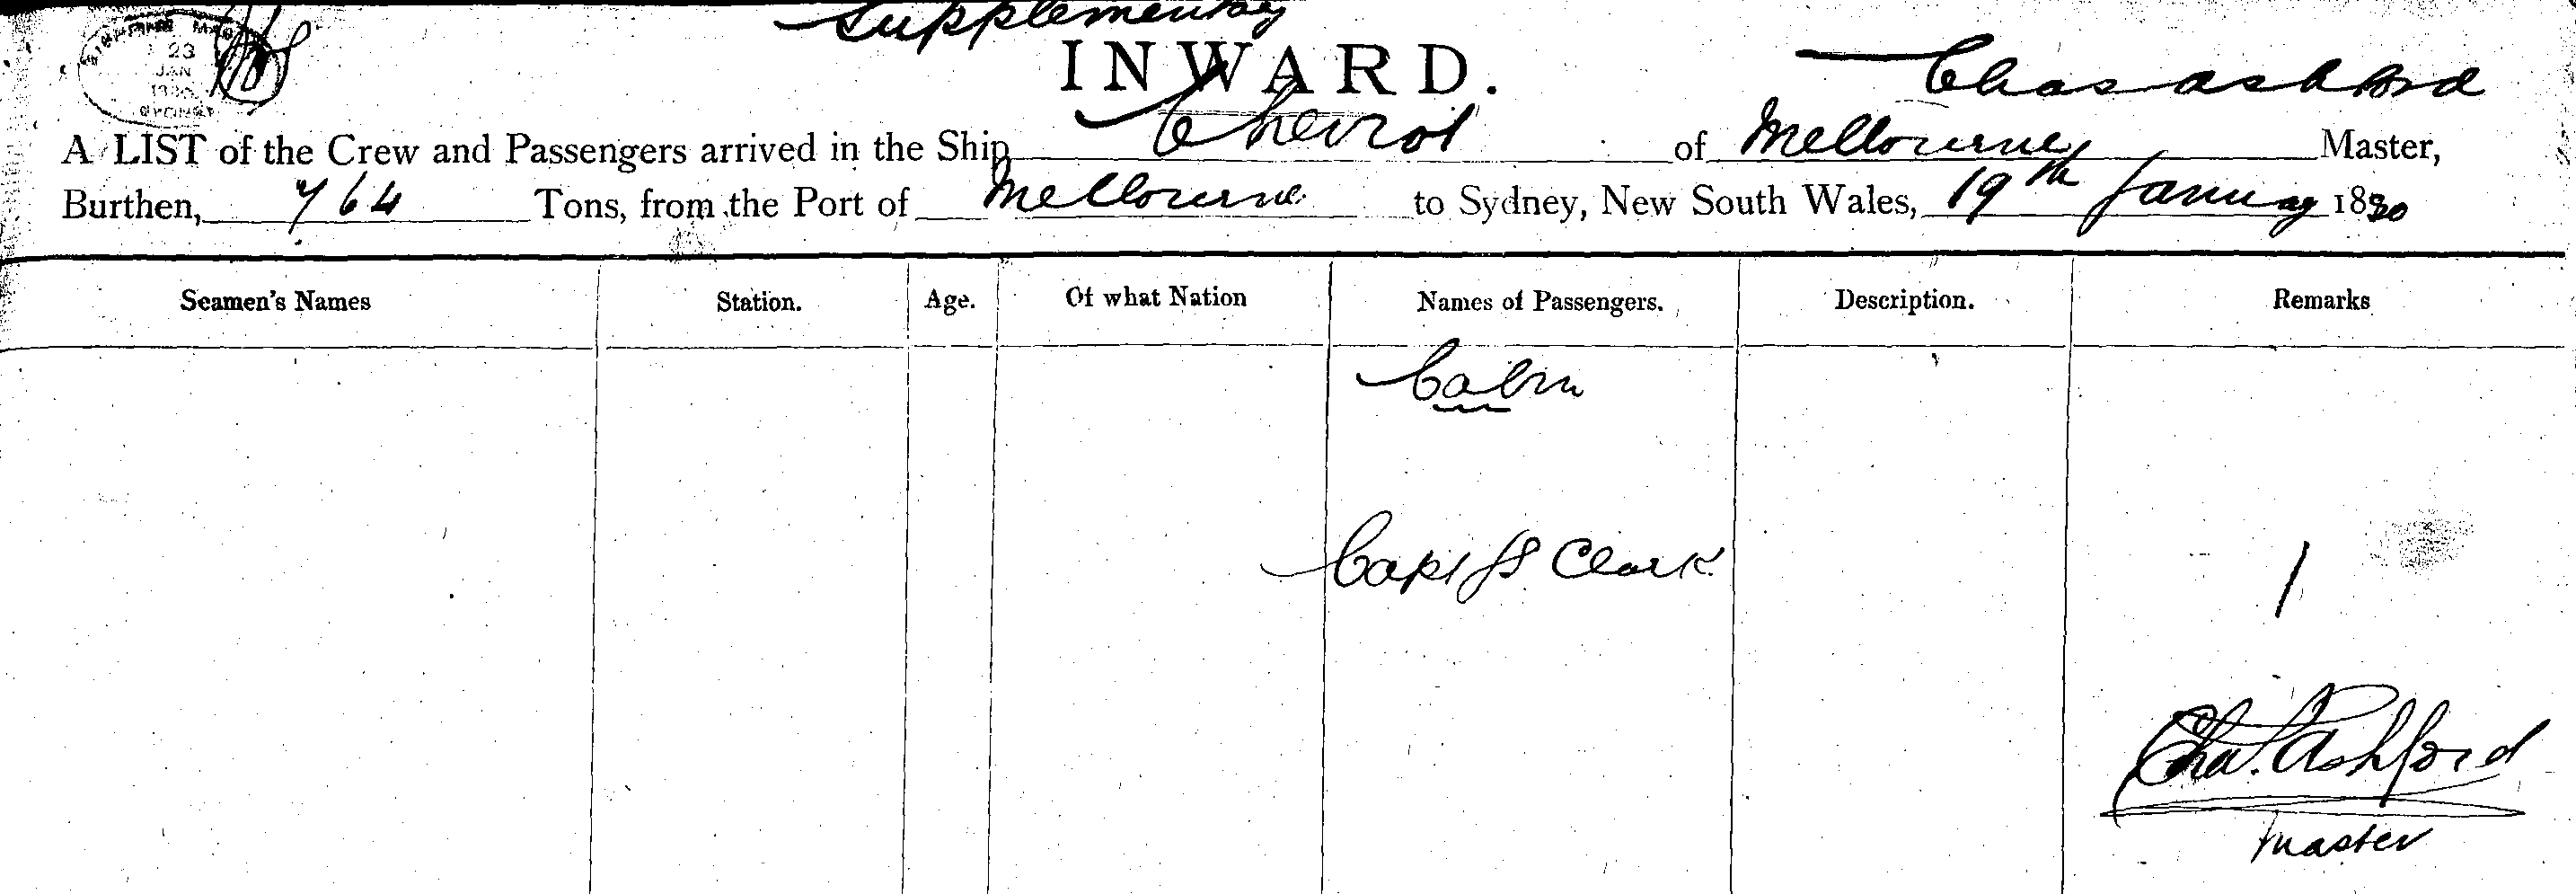 Supplementary
SHIPPING MAS
23
JAN
SYDNEY
INWARD.
Chas Ashford
A LIST of the Crew and Passengers arrived in the Ship Cheviot of Melbourne Master,
Burthen, 764 Tons, from the Port of Melbourne to Sydney, New South Wales, 19th January 1880
Seamen's Names Station. Age. Of what Nation Names of Passengers. Description. Remarks
Cabin
Capt Clark 1
Chas. Ashford
Master